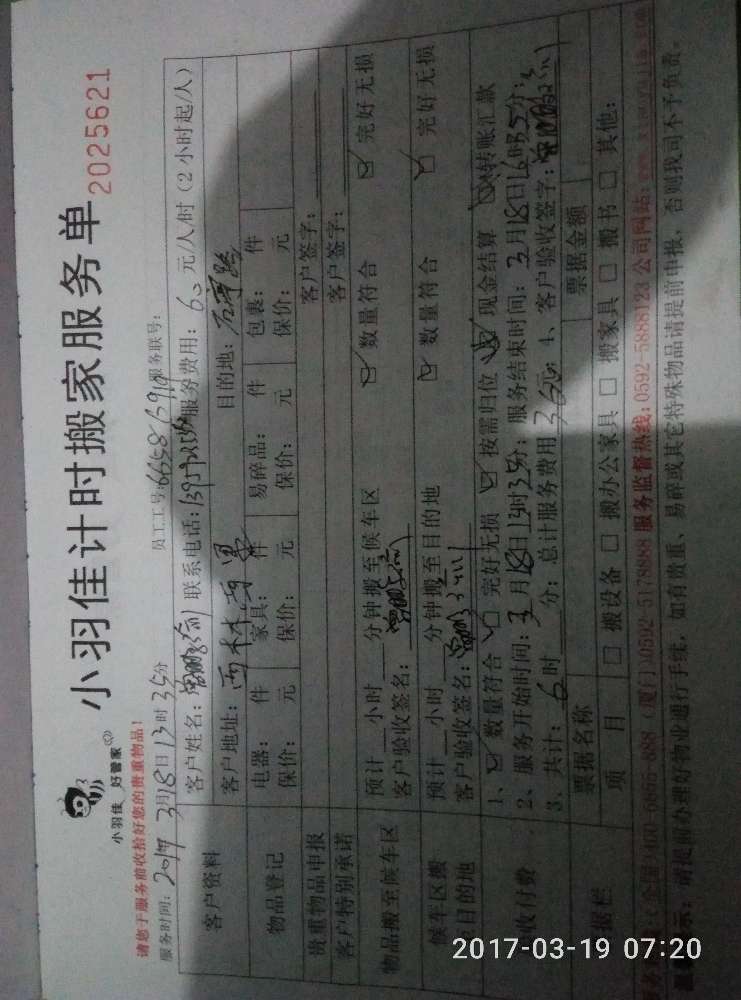 小羽佳计时搬家服务单
2025621
小羽佳 好管家
请您于服务前收拾好您的贵重物品！
服务时间：2017年3月18日13时35分 员工工号：6658 服务联号：
客户资料
客户姓名： 联系电话： 服务费用：60元/人/时（2小时起/人）
客户地址： 目的地：
物品登记
电器： 件 家具： 件 易碎品： 件 包裹： 件
保价： 元 保价： 元 保价： 元 保价： 元
贵重物品申报 客户签字：
客户特别承诺 客户签字：
物品搬至候车区
预计 小时 分钟搬至候车区 ☑ 数量符合 ☑ 完好无损
客户验收签名：
候车区搬至目的地
预计 小时 分钟搬至目的地 ☑ 数量符合 ☑ 完好无损
客户验收签名：
收付费
1、☑ 数量符合 ☑ 完好无损 ☑ 按需归位 ☑ 现金结算 转账汇款
2、服务开始时间：3月18日13时35分；服务结束时间：3月18日16时35分；
3、共计：6时 分；总计服务费用360元；4、客户验收签字：
票据栏
票据名称 票据金额
项目 □ 搬设备 □ 搬办公家具 □ 搬家具 □ 搬书 □ 其他：
（厦门）0592-5178888 服务监督热线：0592-5888123 公司网站：
请提前办理好物业进行手续，如有贵重、易碎或其它特殊物品请提前申报，否则我司不予负责。
2017-03-19 07:20